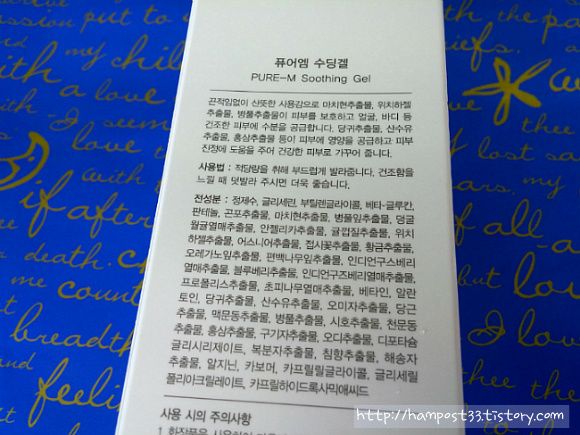 퓨어엠 수딩겔
PURE-M Soothing Gel
끈적임없이 산뜻한 사용감으로 마치현추출물, 위치하젤
추출물, 병풀추출물이 피부를 보호하고 얼굴, 바디 등
건조한 피부에 수분을 공급합니다. 당귀추출물, 산수유
추출물, 홍삼추출물 등이 피부에 영양을 공급하고 피부
진정에 도움을 주어 건강한 피부로 가꾸어 줍니다.
사용법 : 적당량을 취해 부드럽게 발라줍니다. 건조함을
느낄 때 덧발라 주시면 더욱 좋습니다.
전성분 : 정제수, 글리세린, 부틸렌글라이콜, 베타-글루칸,
판테놀, 곤포추출물, 마치현추출물, 병풀잎추출물, 덩굴
월귤열매추출물, 안젤리카추출물, 귤껍질추출물, 위치
하젤추출물, 어스니아추출물, 접시꽃추출물, 황금추출물,
오레가노잎추출물, 편백나무잎추출물, 인디언구스베리
열매추출물, 블루베리추출물, 인디언구즈베리열매추출물,
프로폴리스추출물, 초피나무열매추출물, 베타인, 알란
토인, 당귀추출물, 산수유추출물, 오미자추출물, 당근
추출물, 맥문동추출물, 병풀추출물, 시호추출물, 천문동
추출물, 홍삼추출물, 구기자추출물, 오디추출물, 디포타슘
글리시리제이트, 복분자추출물, 침향추출물, 해송자
추출물, 알지닌, 카보머, 카프릴릴글라이콜, 글리세릴
폴리아크릴레이트, 카프릴하이드록사믹애씨드
사용 시의 주의사항
1. 화장품을 사용하여
http://hampost33.tistory.com